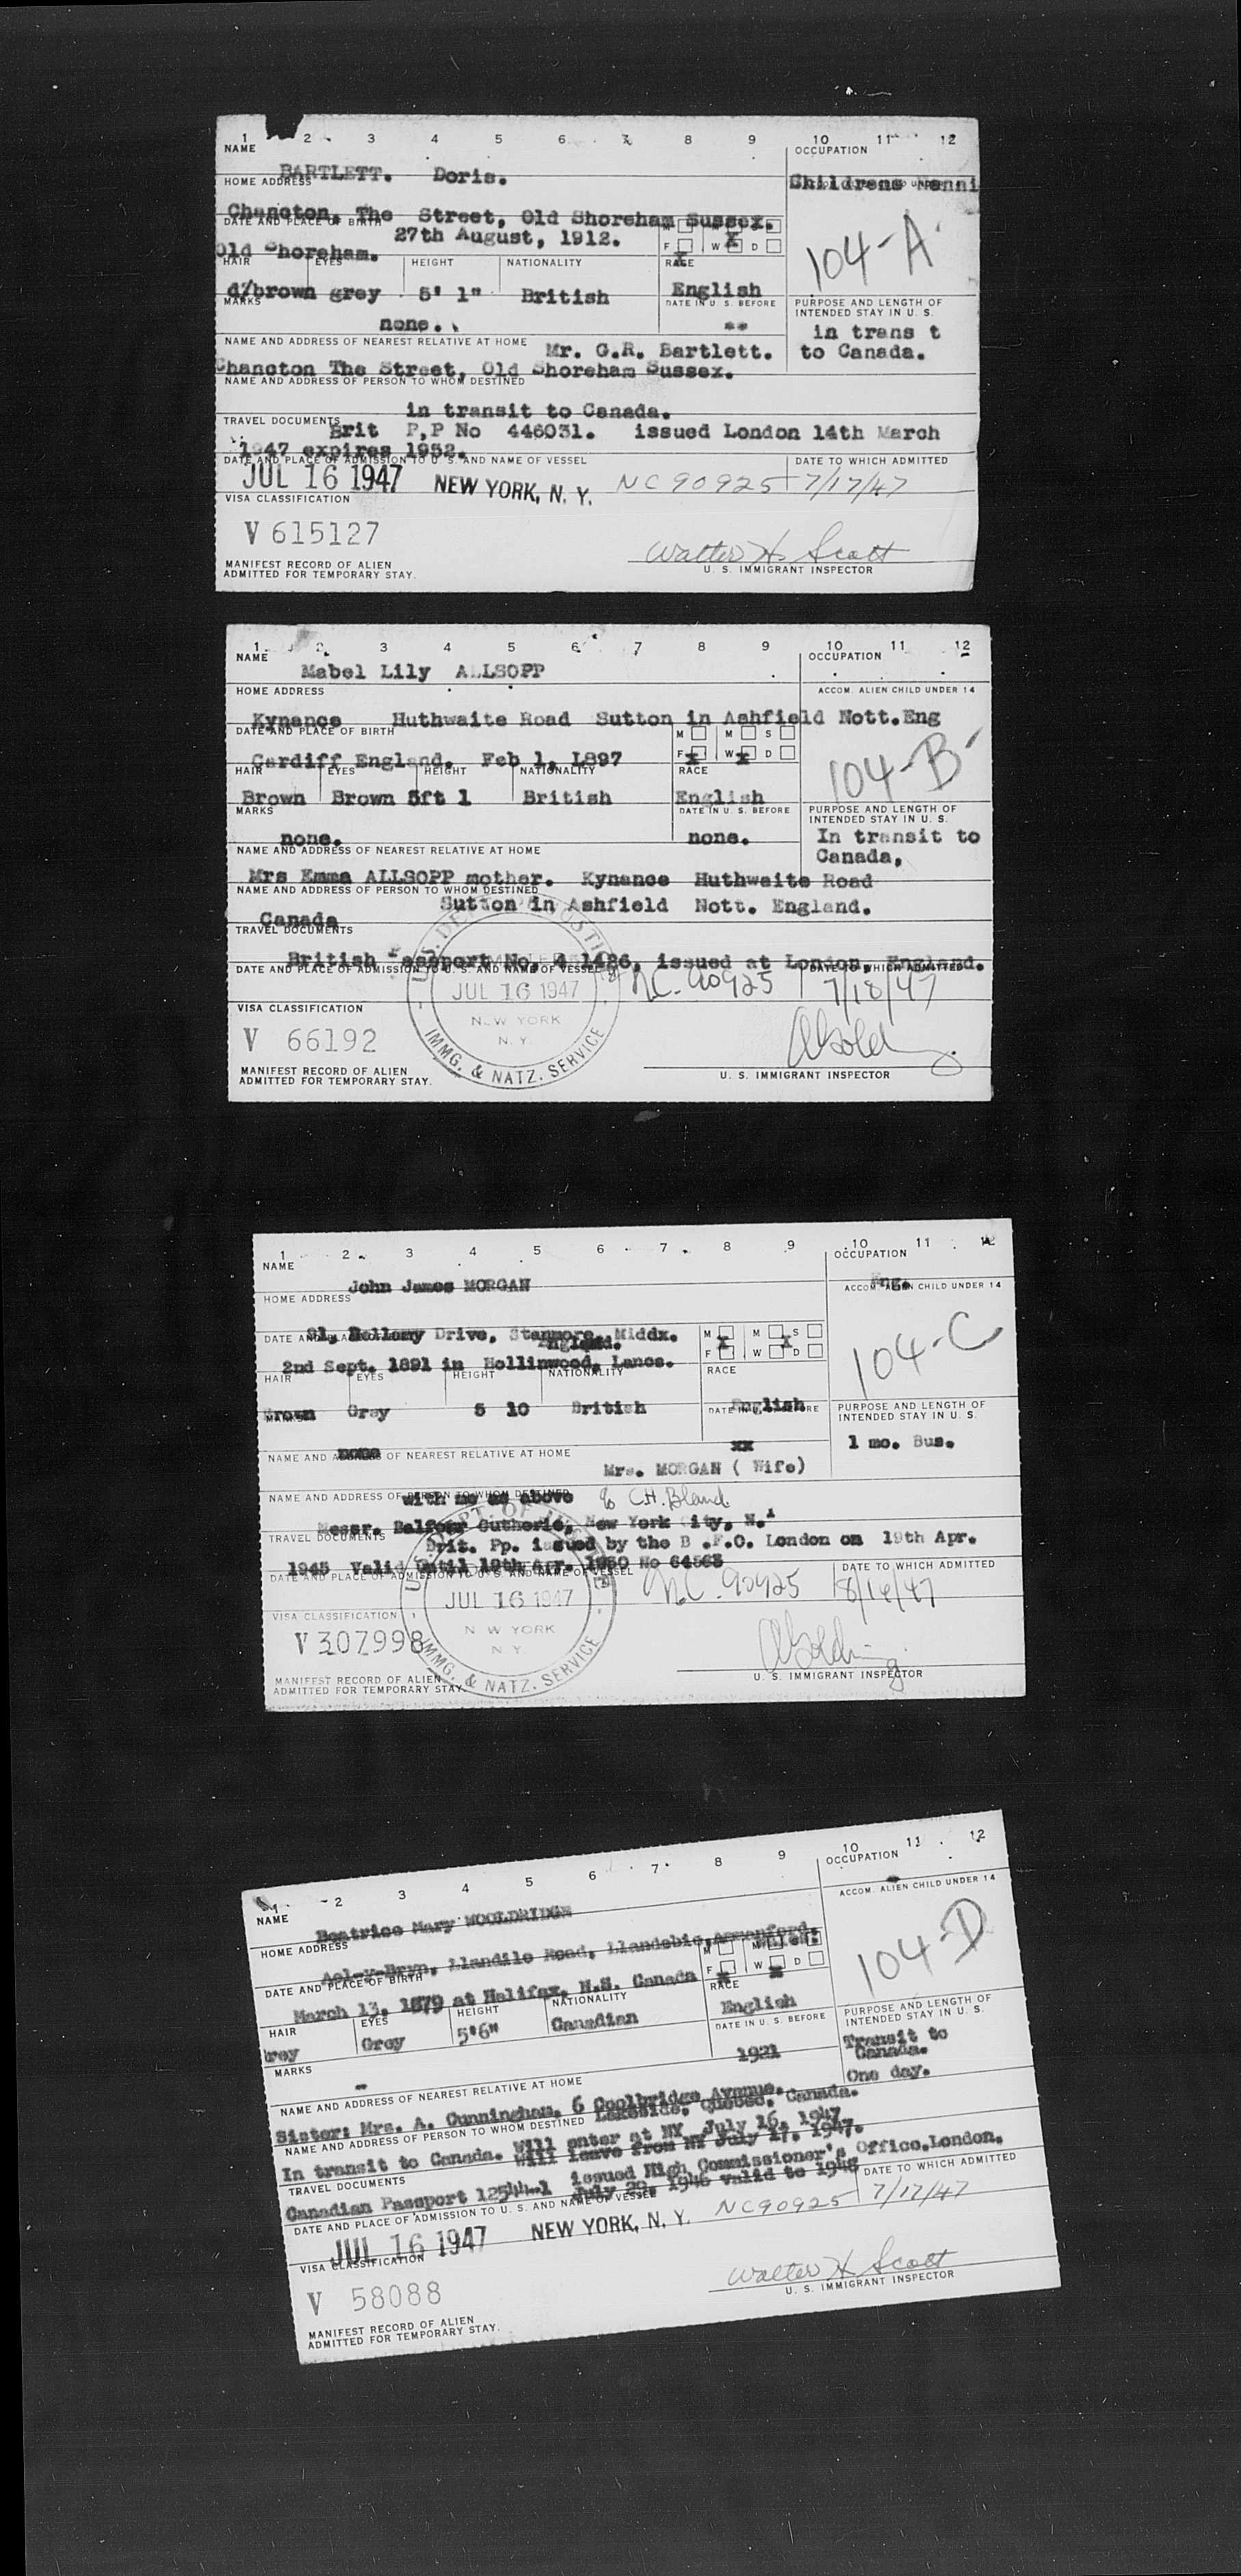 1 2 3 4 5 6 7 8 9 10 11 12
NAME OCCUPATION
BARTLETT. Doris. Childrens
HOME ADDRESS
Chancton, The Street, Old Shoreham Sussex.
DATE AND PLACE OF BIRTH
27th August, 1912. F W D
Old Shoreham. 104-A
HAIR EYES HEIGHT NATIONALITY RACE
d/brown grey 5' 1" British English
MARKS DATE IN U. S. BEFORE PURPOSE AND LENGTH OF
INTENDED STAY IN U. S.
none. ** in trans t
NAME AND ADDRESS OF NEAREST RELATIVE AT HOME Mr. G.R. Bartlett. to Canada.
Chancton The Street, Old Shoreham Sussex.
NAME AND ADDRESS OF PERSON TO WHOM DESTINED
in transit to Canada.
TRAVEL DOCUMENTS
Brit P,P No 446031. issued London 14th March
1947 expires 1952.
DATE AND PLACE OF ADMISSION TO U. S. AND NAME OF VESSEL DATE TO WHICH ADMITTED
JUL 16 1947 NEW YORK, N. Y. NC 90925 7/17/47
VISA CLASSIFICATION
V 615127
Walter H. Scott
MANIFEST RECORD OF ALIEN
ADMITTED FOR TEMPORARY STAY. U. S. IMMIGRANT INSPECTOR
1 2 3 4 5 6 7 8 9 10 11 12
NAME OCCUPATION
Mabel Lily ALLSOPP
HOME ADDRESS ACCOM. ALIEN CHILD UNDER 14
Kynance Huthwaite Road Sutton in Ashfield Nott.Eng
DATE AND PLACE OF BIRTH M M S
Cardiff England. Feb 1, 1897 F W D
104-B
HAIR EYES HEIGHT NATIONALITY RACE
Brown Brown 5ft 1 British English
MARKS DATE IN U. S. BEFORE PURPOSE AND LENGTH OF
INTENDED STAY IN U. S.
none. none. In transit to
NAME AND ADDRESS OF NEAREST RELATIVE AT HOME Canada,
Mrs Emma ALLSOPP mother. Kynance Huthwaite Road
NAME AND ADDRESS OF PERSON TO WHOM DESTINED
Sutton in Ashfield Nott. England.
Canada
TRAVEL DOCUMENTS
British Passport No, 4 1486, issued at London, England.
DATE AND PLACE OF ADMISSION TO U. S. AND NAME OF VESSEL DATE TO WHICH ADMITTED
JUL 16 1947 N.C. 90925 7/18/47
NEW YORK
N. Y.
IMMG. & NATZ. SERVICE
VISA CLASSIFICATION
V 66192
MANIFEST RECORD OF ALIEN
ADMITTED FOR TEMPORARY STAY. U. S. IMMIGRANT INSPECTOR
1 2 3 4 5 6 7 8 9 10 11 12
NAME OCCUPATION
John James MORGAN Eng.
HOME ADDRESS ACCOM. ALIEN CHILD UNDER 14
Bellamy Drive, Stanmore, Middx.
DATE AND PLACE OF BIRTH England. M M S
2nd Sept. 1891 in Hollinwood, Lancs. F W D
104-C
HAIR EYES HEIGHT NATIONALITY RACE
Brown Gray 5 10 British English
MARKS DATE IN U. S. BEFORE PURPOSE AND LENGTH OF
INTENDED STAY IN U. S.
none xx 1 mo. Bus.
NAME AND ADDRESS OF NEAREST RELATIVE AT HOME
Mrs. MORGAN ( Wife)
NAME AND ADDRESS OF PERSON TO WHOM DESTINED
with me as above % C.H. Bland
Messr. Balfour Gutherie, New York City, N.Y
TRAVEL DOCUMENTS
Brit. Pp. issued by the B .F.O. London on 19th Apr.
1945 Valid Until 19th Apr. 1950 No 64563
DATE AND PLACE OF ADMISSION TO U. S. AND NAME OF VESSEL DATE TO WHICH ADMITTED
JUL 16 1947 N.C. 90925 8/16/47
N W YORK
N Y.
IMMG. & NATZ. SERVICE
VISA CLASSIFICATION
V 307998
MANIFEST RECORD OF ALIEN
ADMITTED FOR TEMPORARY STAY. U. S. IMMIGRANT INSPECTOR
1 2 3 4 5 6 7 8 9 10 11 12
NAME OCCUPATION
Beatrice Mary WOOLDRIDGE
HOME ADDRESS ACCOM. ALIEN CHILD UNDER 14
Ael-y-Bryn, Llandilo Road, Llandebie, Ammanford,
DATE AND PLACE OF BIRTH M
March 13, 1879 at Halifax, N.S. Canada F W D
104-D
HAIR EYES HEIGHT NATIONALITY RACE
Grey Grey 5'6" Canadian English
MARKS DATE IN U. S. BEFORE PURPOSE AND LENGTH OF
INTENDED STAY IN U. S.
- 1921 Transit to
Canada.
One day.
NAME AND ADDRESS OF NEAREST RELATIVE AT HOME
Sister: Mrs. A. Cunningham, 6 Coolbridge Avenue,
Lakeside, Quebec, Canada.
NAME AND ADDRESS OF PERSON TO WHOM DESTINED
In transit to Canada. Will enter at NY July 16, 1947
Will leave from NY July 17, 1947.
TRAVEL DOCUMENTS
Canadian Passport 12544-1 issued High Commissioner's Office,London,
July 29, 1946 valid to 1948
DATE AND PLACE OF ADMISSION TO U. S. AND NAME OF VESSEL DATE TO WHICH ADMITTED
JUL 16 1947 NEW YORK, N. Y. NC90925 7/17/47
VISA CLASSIFICATION
V 58088
Walter H Scott
MANIFEST RECORD OF ALIEN
ADMITTED FOR TEMPORARY STAY. U. S. IMMIGRANT INSPECTOR